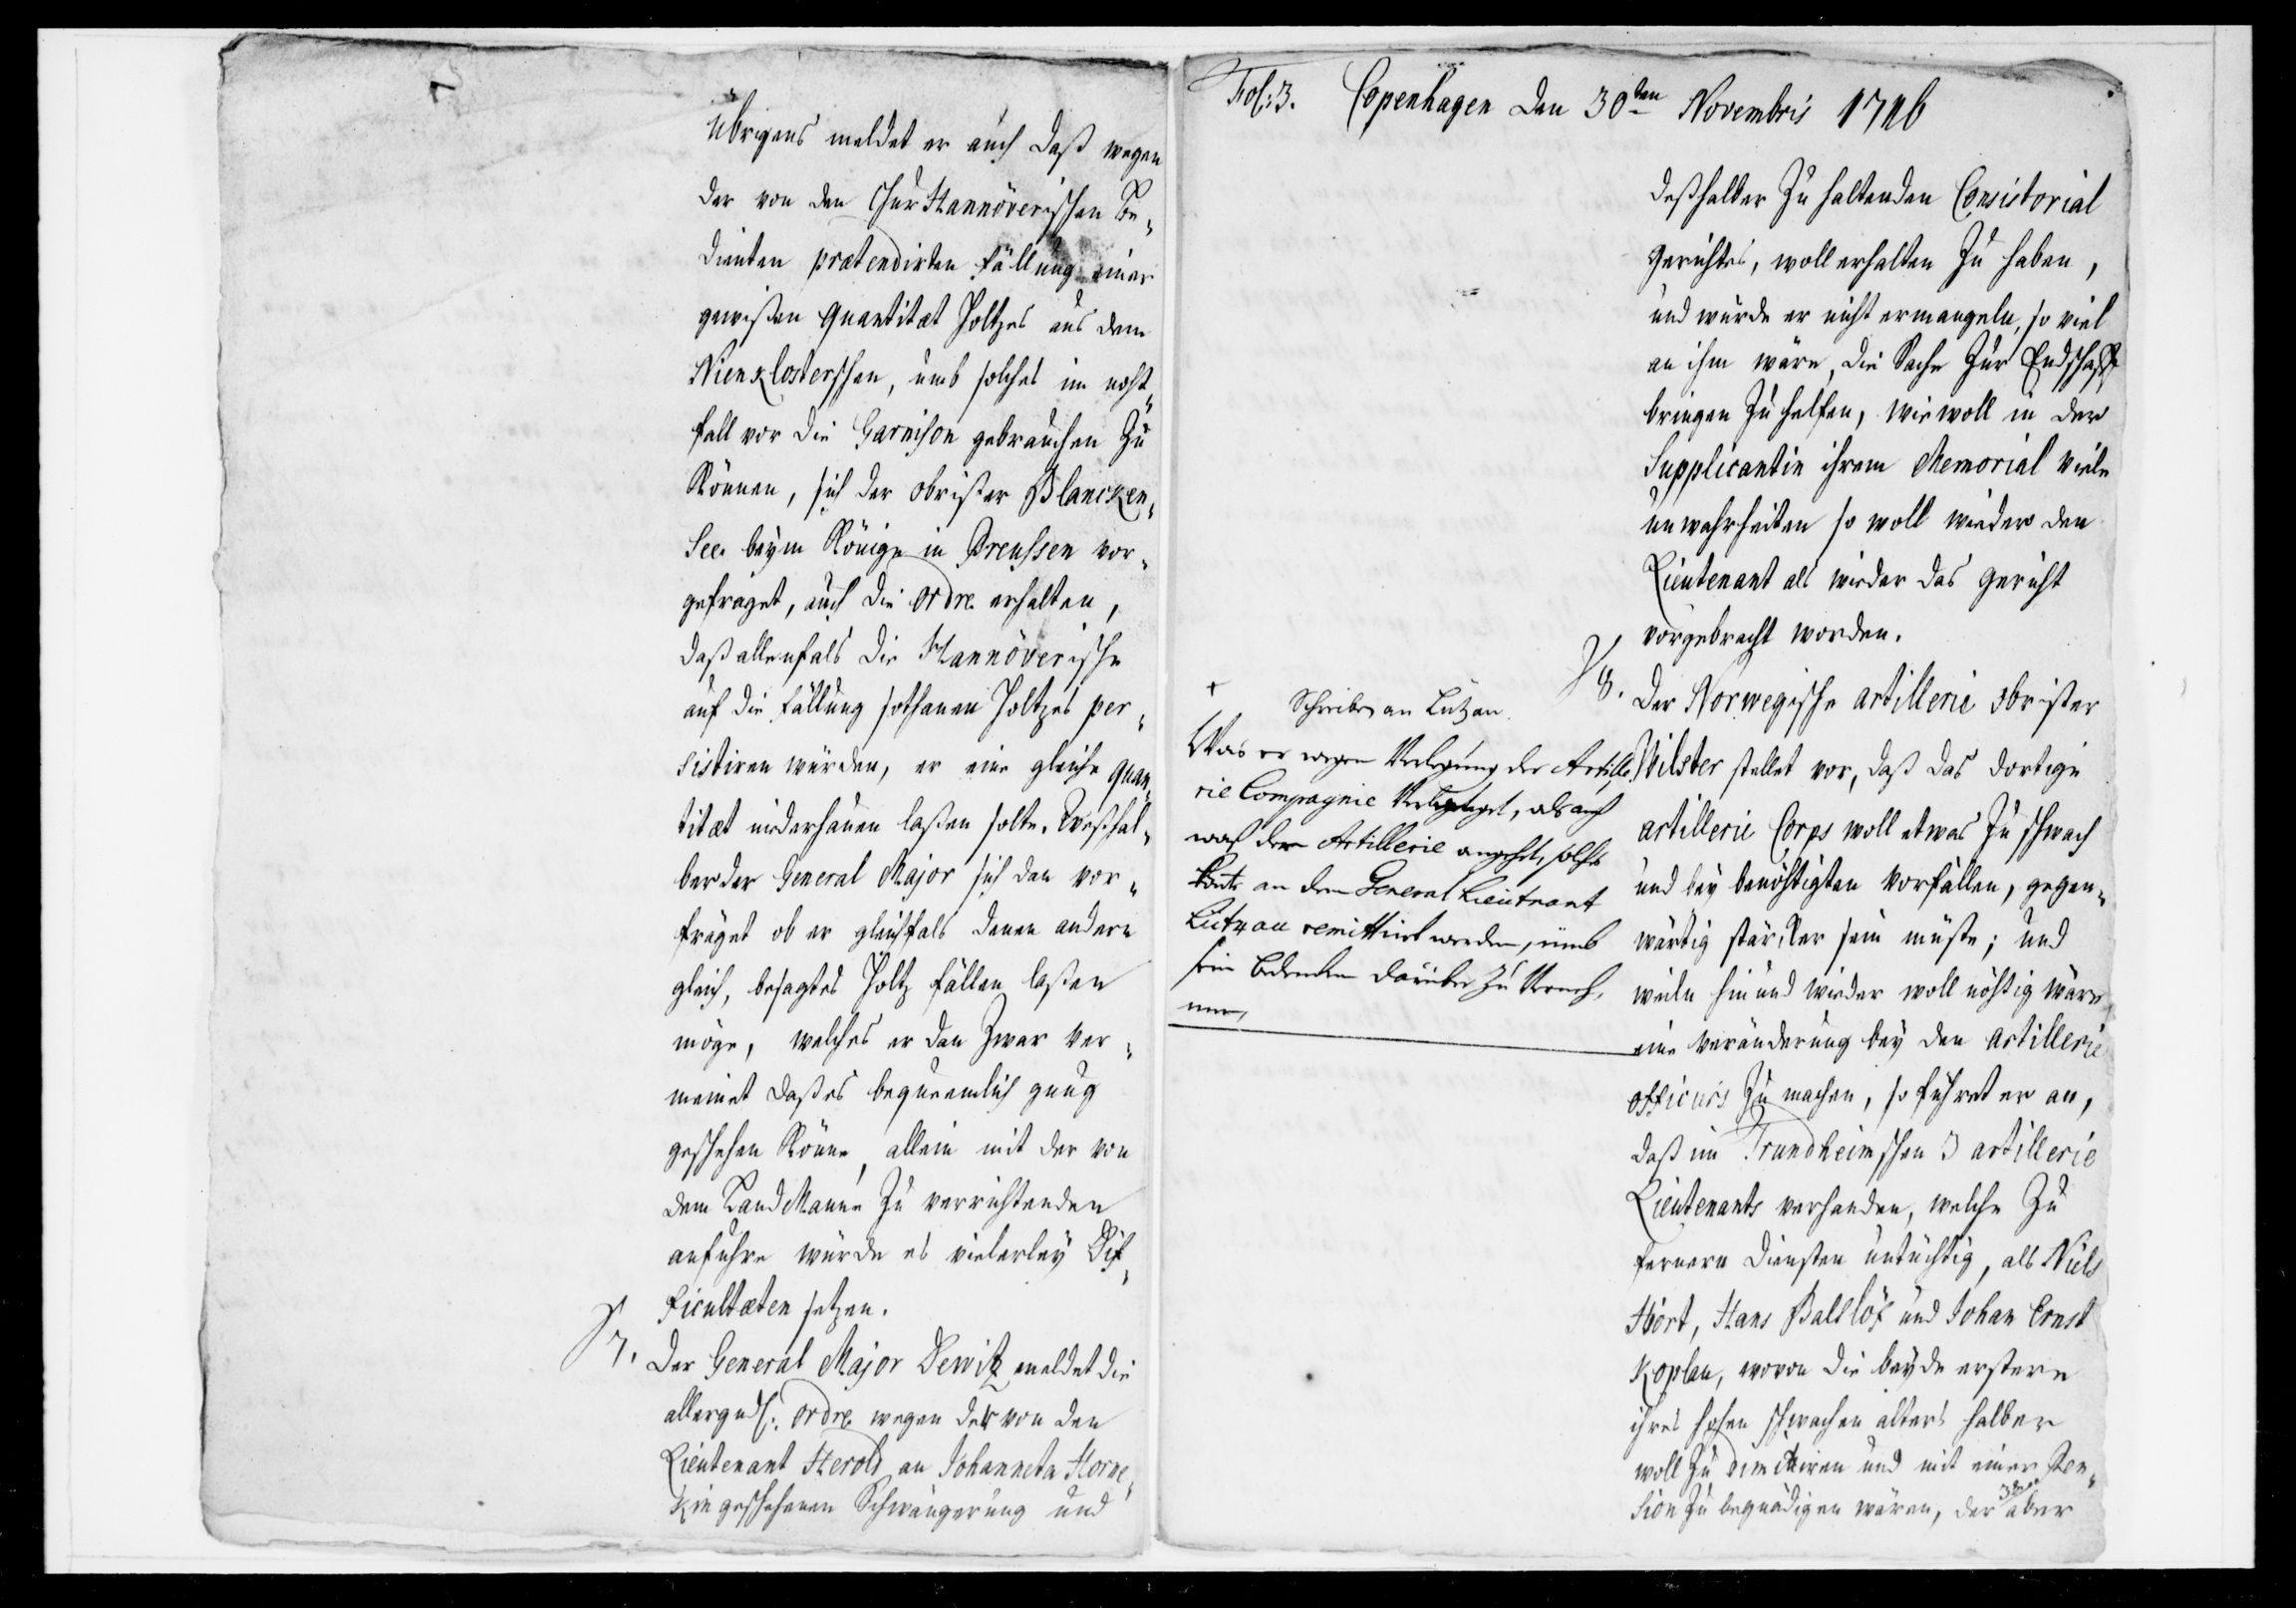 Übrigens meldet er auch daß wegen
der von den ChurHannöverischen Be,
dienten prætendirten fällung einer
gewißen quantitæt Holtzes aus dem
Nienklosterschen, umb solches im noht,
fall vor die Garnison gebrauchen zu
Können, sich der obrister Blancken,
See beym Könige in Preussen vor,
gefraget, auch die ordre erhalten,
daß allenfals die Hannöverische
auf die fällung sothanen Holtzes per,
sistiren würden, er eine gleiche quan,
titæt niederhauen laßen solte. Weßhal,
ber der General Major sich den vor,
fräget ob er gleichfals denen andern
gleich, besagtes Holtz fällen laßen
möge, welches er den zwar ver,
meinet daß es bequemlich gnug
geschehen Könne, allein mit der von
dem LandManne zu verrichtenden
anfuhre würde es vielerley Dif,
ficultæten setzen.
7. Der General Major Dewitz meldet die
allergndl: ordre wegen der von den
Lieutenant Herold an Johanneta Horne,
kin geschehenen Schwängerung und
Fol: 3. Copenhagen den 30ten Novembris 1716
deßhalber zu haltenden Consistorial
gerichts, woll erhalten zu haben,
und würde er nicht ermangeln, so viel
an ihm wäre, die Sache zur Endschafft
bringen zu helfen, wie woll in der
Supplicantin ihrem Memorial viele
unwahrheiten so woll wieder den
Lieutenant als wieder das gericht
vorgebracht worden.
8. Der Norwegische artillerie obrister
Wilster stellet vor, daß das dortige
artillerie Corps woll etwas zu schwach
und bey benöhtigten Vorfällen, gegen,
wärtig stärcker sein müste; und
weiln hin und wieder woll nöhtig wäre
eine veränderung bey den artillerie
officiers zu machen, so führet er an,
daß im Trundheimschen 3 artillerie
Lieutenants verhanden, welche zu
fernern diensten untüchtig, als Niels
Hiort, Hans Ballöf und Johan Ernst
Koplau, wovon die beyde erstern
ihres hohen schwachen alters halber
woll zu dimittiren und mit einer Pen,
sion zu begnädigen wären, der 3te aber
+
Schreiben an Lützau.
Was er wegen Verlegung der Artille,
rie Compagnie, als auch
was der Artillerie angehet, solches
könte an dem General Lieutnant
Lützau remittiret werden, umb
sein bedencken darüber zu Verneh,
men,